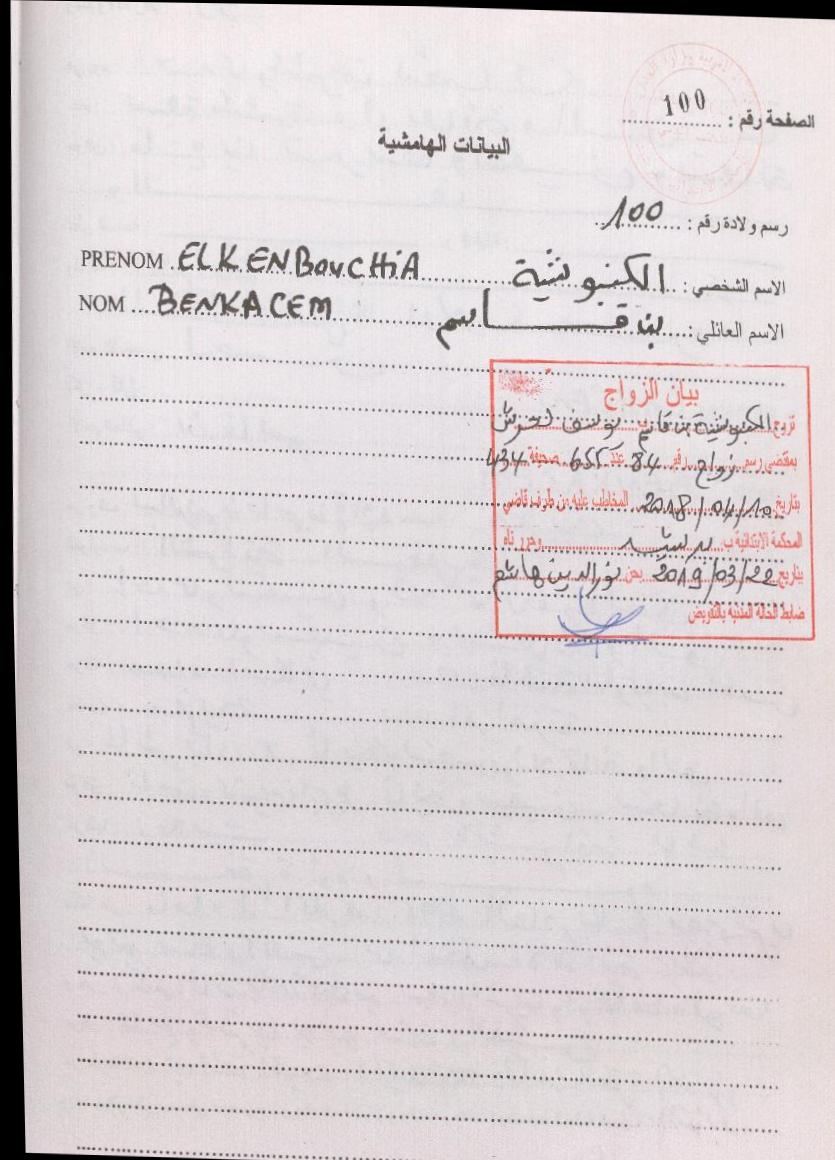 الصفحة رقم : 100
البيانات الهامشية
رسم ولادة رقم : 100
PRENOM ELKENBOUCHIA الاسم الشخصي : الكنبوشية
NOM BENKACEM الاسم العائلي : بن قاسم
بيان الزواج
تزوج الكنبوشية بن قاسم ب يوسف
بمقتضى رسم زواج رقم 84 عدد 655 صحيفة 434
بتاريخ 2018/04/10 المخاطب عليه من طرف قاضي
المحكمة الابتدائية ب برشيد وحرر تاه
بتاريخ 2019/03/22 نحن نور الدين هاشم
ضابط الحالة المدنية بالتفويض